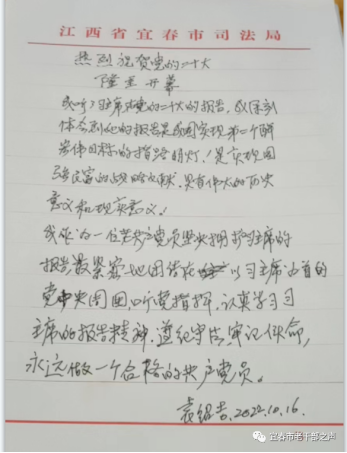 江西省宜春市司法局
热烈祝贺党的二十大
隆重开幕
我听了习主席对党的二十大的报告,以深刻
体会到他的报告是我国实现第二个奋
斗百年目标的指路明灯!是实现国
强民富的战略文献,具有伟大的历史
意义和现实意义!
我作为一位共产党员坚决拥护习主席的
报告最紧密地团结在以习主席为首的
党中央周围,听党指挥,认真学习习
主席的报告精神,遵纪守法,牢记使命,
永远做一个合格的共产党员。
2022.10.16.
宜春市老干部之声